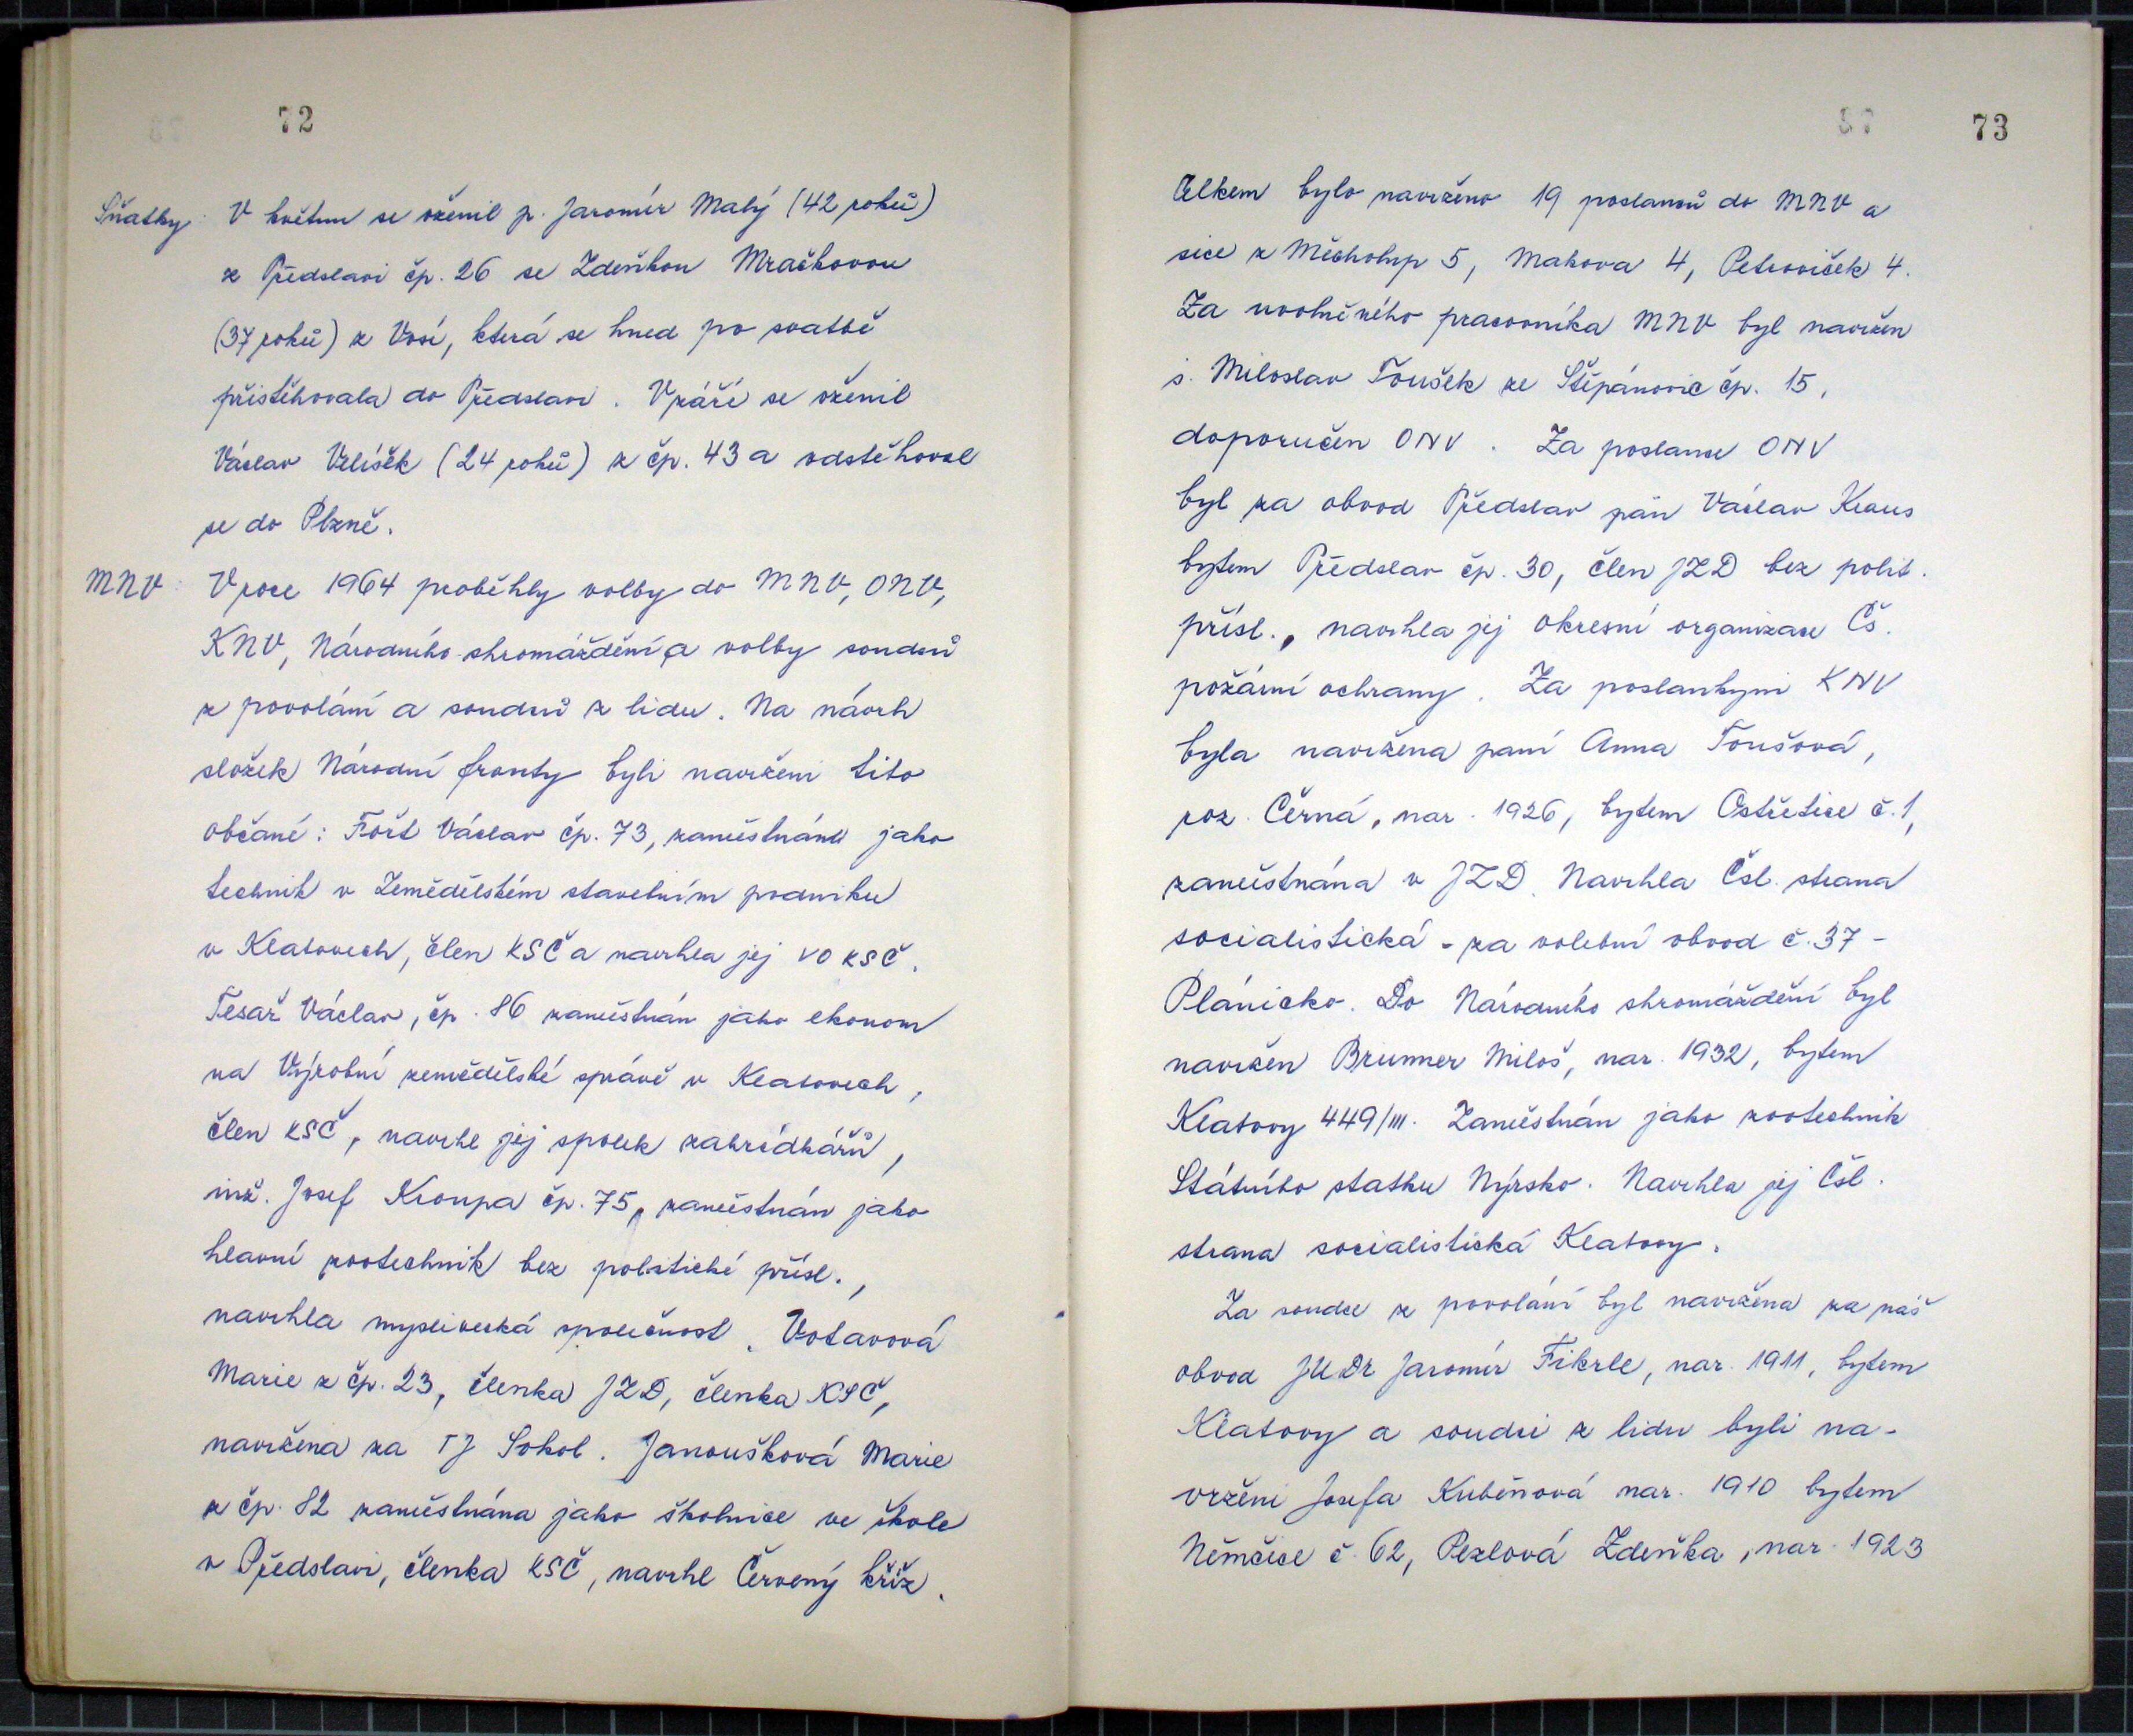 72
Sňatky: V květnu se oženil p. Jaromír Malý (42 roků)
z Předslavi čp. 26 se Zdeňkou Mračkovou
(37 roků) z Vosí, která se hned po svatbě
přistěhovala do Předslavi. V září se oženil
Václav Velíšek (24 roků) z čp. 43 a odstěhoval
se do Plzně.
MNV: V roce 1964 proběhly volby do MNV, ONV,
KNV, Národního shromáždění a volby soudců
z povolání a soudců z lidu. Na návrh
složek Národní fronty byli navrženi tito
občané: Fošt Václav čp. 73, zaměstnána jako
technik v Zemědělském stavebním podniku
v Klatovech, člen KSČ a navrhla jej VO KSČ.
Tesař Václav, čp. 86 zaměstnán jako ekonom
na Výrobní zemědělské správě v Klatovech,
člen KSČ, navrhl jej spolek zahrádkářů,
inž. Josef Kroupa čp. 75, zaměstnán jako
hlavní zootechnik bez politické přísl.,
navrhla myslivecká společnost. Votavová
Marie z čp. 23, členka JZD, členka KSČ,
navržena za TJ Sokol. Janoušková Marie
z čp. 82 zaměstnána jako školnice ve škole
v Předslavi, členka KSČ, navrhl Červený kříž.
73
Celkem bylo navrženo 19 poslanců do MNV a
sice z Měcholup 5, Makova 4, Petroviček 4.
Za uvolněného pracovníka MNV byl navržen
s. Miloslav Toušek ze Štěpánovic čp. 15,
doporučen ONV. Za poslance ONV
byl za obvod Předslav pán Václav Kraus
bytem Předslav čp. 30, člen JZD bez polit.
přísl., navrhla jej okresní organizace Čs.
požární ochrany. Za poslankyni KNV
byla navržena paní Anna Toušová,
roz. Černá, nar. 1926, bytem Ostřetice č. 1,
zaměstnána v JZD. Navrhla Čsl. strana
socialistická - za volební obvod č. 37 -
Plánicko. Do Národního shromáždění byl
navržen Brunner Miloš, nar. 1932, bytem
Klatovy 449/III. Zaměstnán jako zootechnik
Státního statku Nýrsko. Navrhla jej Čsl.
strana socialistická Klatovy.
Za soudce z povolání byl navržena za náš
obvod JUDr Jaromír Fikrle, nar. 1911, bytem
Klatovy a soudci z lidu byli na-
vrženi Josefa Kuběňová nar. 1910 bytem
Němčice č. 62, Pezlová Zdeňka, nar. 1923